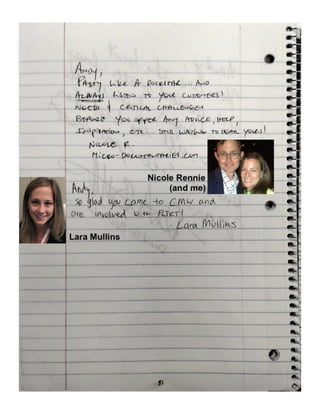 Andy,
Party Like A Rockstar... And
Always listen to your customers'
Needs & critical challenges
Before you offer any advice, help,
inspiration, etc... Still waiting to hear yours!
Nicole R.
Micro-Documentaries.com
Nicole Rennie
(and me)
Andy,
So glad you came to CMW and
are involved with FLIRT!
- Lara Mullins
Lara Mullins
51